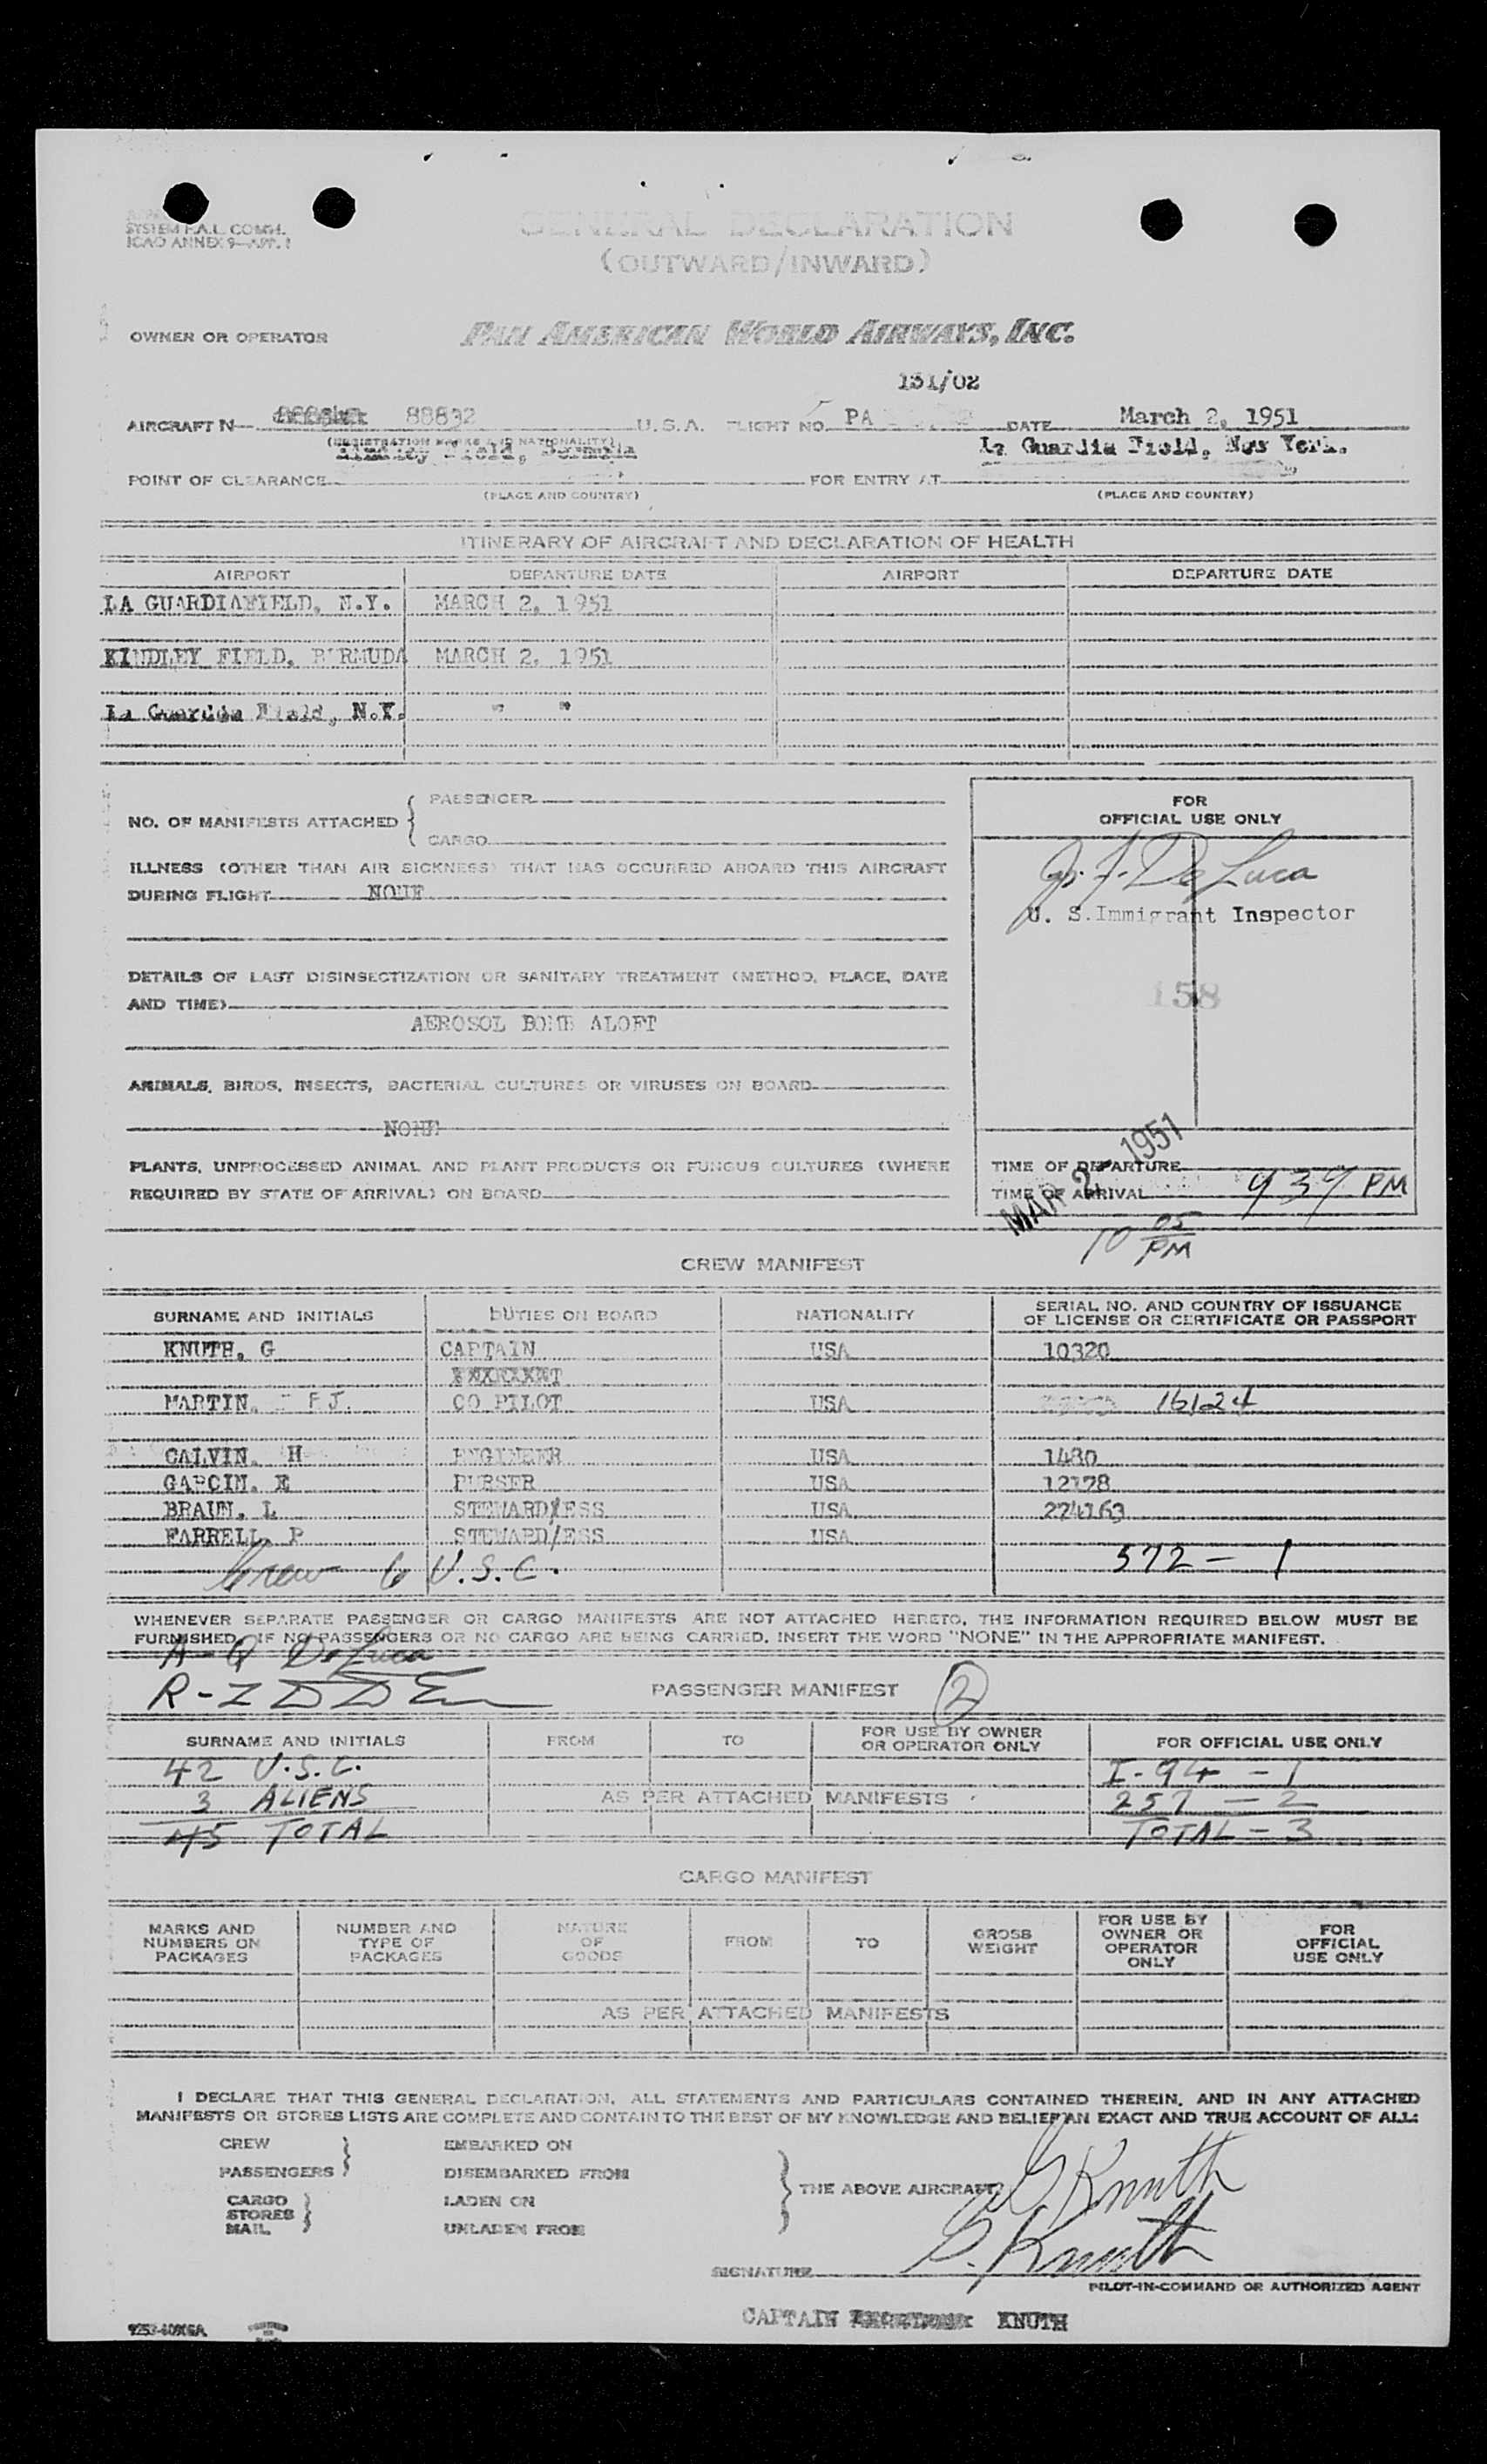 SYSTEM F.A.L. COMM.
ICAO ANNEX 9—APP. 1
GENERAL DECLARATION
(OUTWARD/INWARD)
OWNER OR OPERATOR PAN AMERICAN WORLD AIRWAYS, INC.
131/02
AIRCRAFT N 88832 U.S.A. FLIGHT NO. PA DATE March 2, 1951
(REGISTRATION MARKS AND NATIONALITY)
Kindley Field, Bermuda La Guardia Field, New York.
POINT OF CLEARANCE FOR ENTRY AT
(PLACE AND COUNTRY) (PLACE AND COUNTRY)
ITINERARY OF AIRCRAFT AND DECLARATION OF HEALTH
AIRPORT DEPARTURE DATE AIRPORT DEPARTURE DATE
LA GUARDIAFIELD, N.Y. MARCH 2, 1951
KINDLEY FIELD, BERMUDA MARCH 2, 1951
La Guardia Field, N.Y. " "
PASSENGER
NO. OF MANIFESTS ATTACHED
CARGO
FOR
OFFICIAL USE ONLY
ILLNESS (OTHER THAN AIR SICKNESS) THAT HAS OCCURRED ABOARD THIS AIRCRAFT
DURING FLIGHT NONE
De Luca
U. S. Immigrant Inspector
DETAILS OF LAST DISINSECTIZATION OR SANITARY TREATMENT (METHOD, PLACE, DATE
AND TIME)
AEROSOL BOMB ALOFT
158
ANIMALS, BIRDS, INSECTS, BACTERIAL CULTURES OR VIRUSES ON BOARD
NONE
MAR 2 - 1951
PLANTS, UNPROCESSED ANIMAL AND PLANT PRODUCTS OR FUNGUS CULTURES (WHERE
REQUIRED BY STATE OF ARRIVAL) ON BOARD
TIME OF DEPARTURE
TIME OF ARRIVAL 937 PM
10 05 PM
CREW MANIFEST
SURNAME AND INITIALS DUTIES ON BOARD NATIONALITY SERIAL NO. AND COUNTRY OF ISSUANCE
OF LICENSE OR CERTIFICATE OR PASSPORT
KNUTH, G CAPTAIN USA 10320
MARTIN, F J. CO PILOT USA 16124
CALVIN, H ENGINEER USA 1480
GARCIN, E PURSER USA 12178
BRAUN, L STEWARD/ESS USA 274163
FARRELL, P STEWARD/ESS USA
Crew 6 U.S.C. 572 - 1
WHENEVER SEPARATE PASSENGER OR CARGO MANIFESTS ARE NOT ATTACHED HERETO, THE INFORMATION REQUIRED BELOW MUST BE
FURNISHED. IF NO PASSENGERS OR NO CARGO ARE BEING CARRIED, INSERT THE WORD "NONE" IN THE APPROPRIATE MANIFEST.
A-Q De Luca
R-Z
PASSENGER MANIFEST 2
SURNAME AND INITIALS FROM TO FOR USE BY OWNER
OR OPERATOR ONLY FOR OFFICIAL USE ONLY
42 U.S.C. I-94 - 1
3 ALIENS AS PER ATTACHED MANIFESTS 257 - 2
45 TOTAL TOTAL - 3
CARGO MANIFEST
MARKS AND
NUMBERS ON
PACKAGES
NUMBER AND
TYPE OF
PACKAGES
NATURE
OF
GOODS
FROM
TO
GROSS
WEIGHT
FOR USE BY
OWNER OR
OPERATOR
ONLY
FOR
OFFICIAL
USE ONLY
AS PER ATTACHED MANIFESTS
I DECLARE THAT THIS GENERAL DECLARATION, ALL STATEMENTS AND PARTICULARS CONTAINED THEREIN, AND IN ANY ATTACHED
MANIFESTS OR STORES LISTS ARE COMPLETE AND CONTAIN TO THE BEST OF MY KNOWLEDGE AND BELIEF AN EXACT AND TRUE ACCOUNT OF ALL:
CREW EMBARKED ON
PASSENGERS DISEMBARKED FROM
THE ABOVE AIRCRAFT
CARGO LADEN ON
STORES
MAIL UNLADEN FROM
G Knuth
G. Knuth
SIGNATURE
PILOT-IN-COMMAND OR AUTHORIZED AGENT
CAPTAIN KNUTH